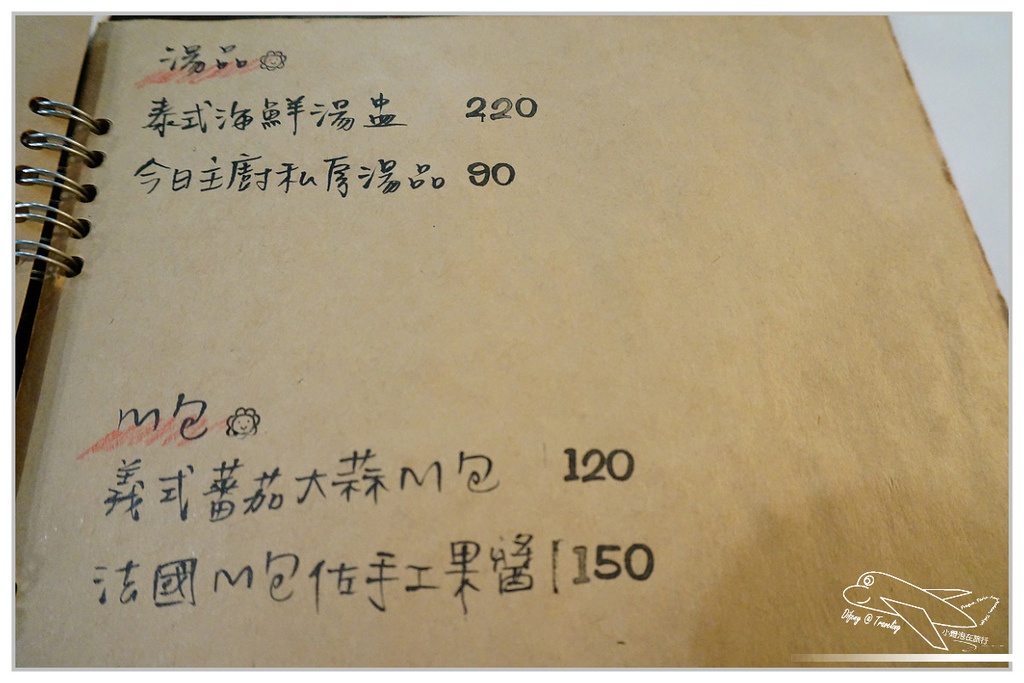 湯品
泰式海鮮湯盅 220
今日主廚私房湯品 90
M包
義式蕃茄大蒜M包 120
法國M包佐手工果醬 150
Difeny @ Traveling
小燈泡在旅行